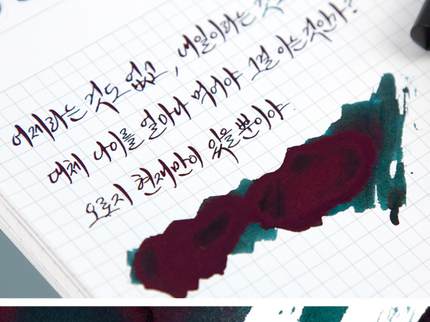 어제라는 것도 없고, 내일이라는 것
대체 나이를 얼마나 먹어야 그걸 아는것인가?
오로지 현재만이 있을뿐이야